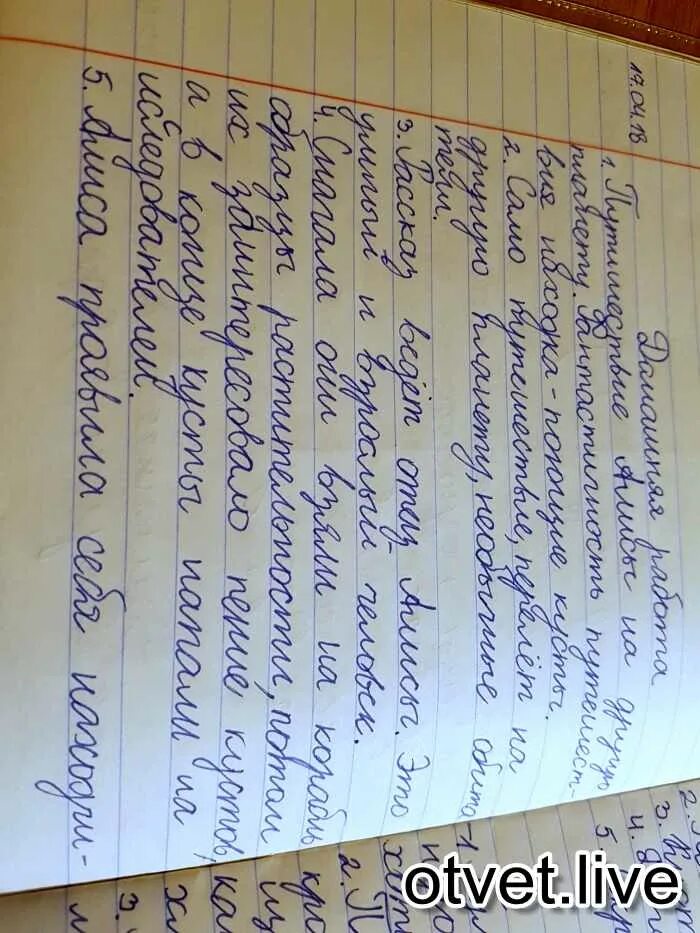 17.04.18
Домашняя работа
1. Путишествие Алисы на другую
планету. Фантастичность путешест-
вия находка - поющие кусты.
2. Само путешествие, перелёт на
другую планету, необычные обита-
тели.
3. Рассказ ведёт отец Алисы. Это
умный и взрослый человек.
4. Сначала они взяли на корабль
образцы растительности, потом
их заинтересовало пение кустов,
а в конце кусты напали на
исследователей.
5. Алиса проявила себя находчи-
otvet.live